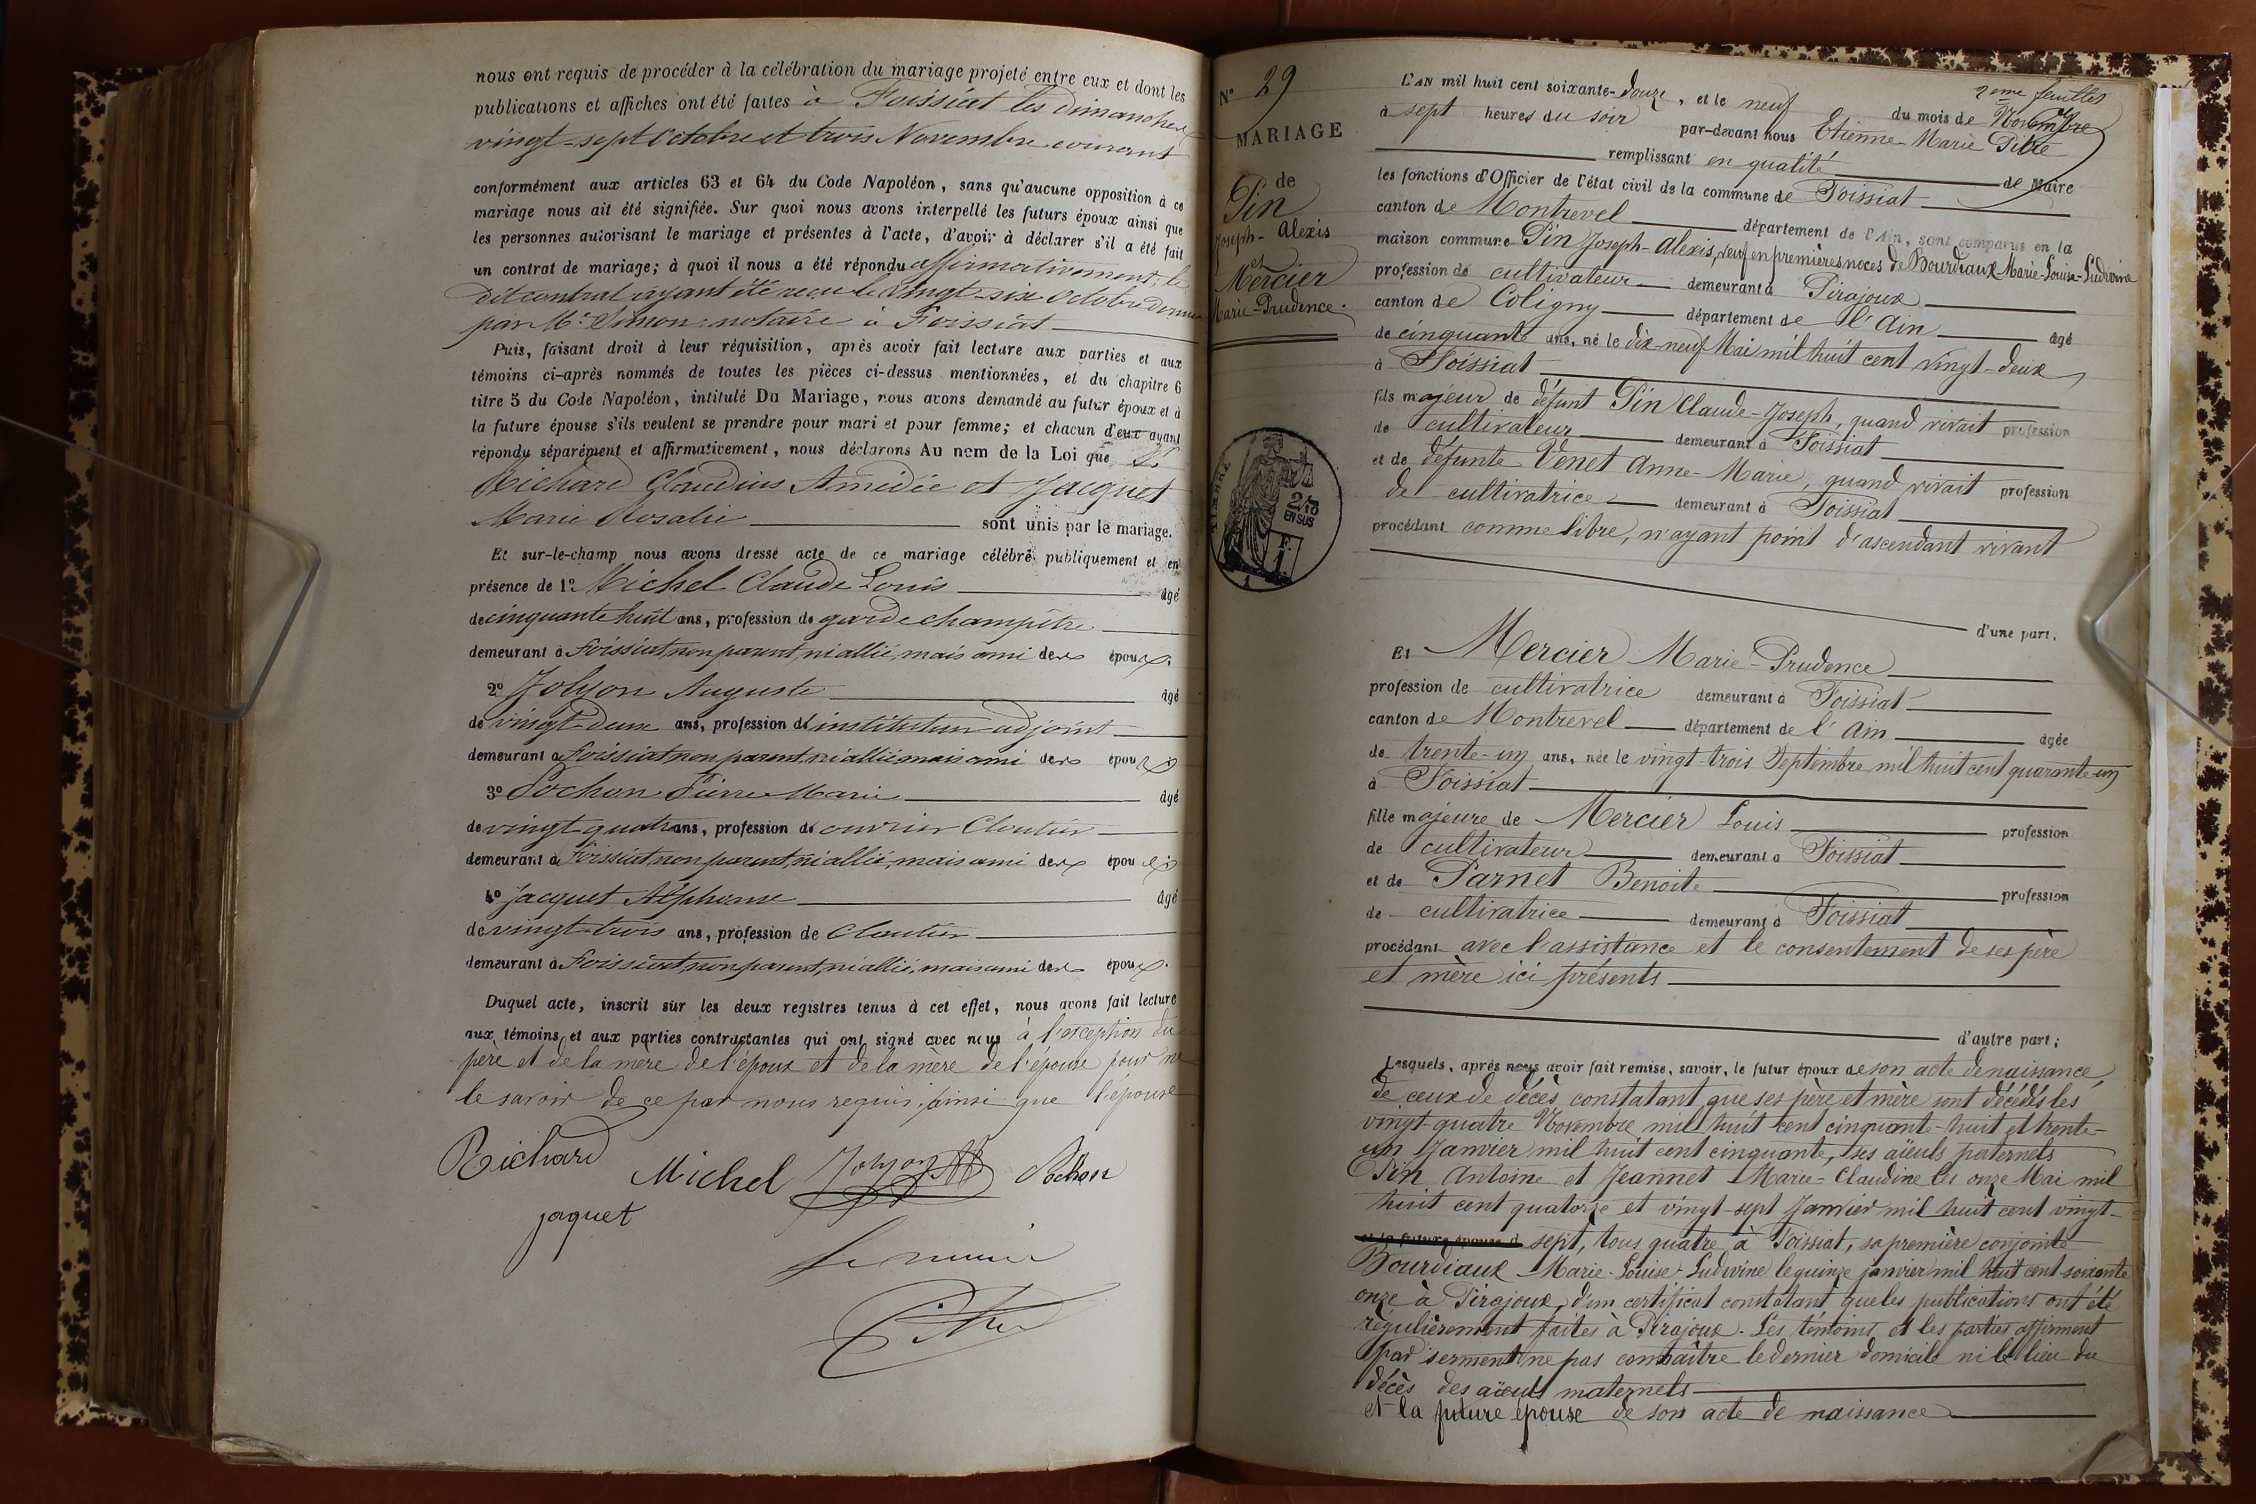 nous ont requis de procéder à la célébration du mariage projeté entre eux et dont les
publications et affiches ont été faites à Foissiat les dimanches
vingt-sept Octobre et trois Novembre courant
conformément aux articles 63 et 64 du Code Napoléon, sans qu'aucune opposition à ce
mariage nous ait été signifiée. Sur quoi nous avons interpellé les futurs époux ainsi que
les personnes autorisant le mariage et présentes à l'acte, d'avoir à déclarer s'il a été fait
un contrat de mariage; à quoi il nous a été répondu affirmativement, le
dit contrat ayant été reçu le vingt-six octobre dernier
par Me Simon notaire à Foissiat
Puis, faisant droit à leur réquisition, après avoir fait lecture aux parties et aux
témoins ci-après nommés de toutes les pièces ci-dessus mentionnées, et du chapitre 6
titre 5 du Code Napoléon, intitulé Du Mariage, nous avons demandé au futur époux et à
la future épouse s'ils veulent se prendre pour mari et pour femme; et chacun d'eux ayant
répondu séparément et affirmativement, nous déclarons Au nom de la Loi que
Richard Claudius Amédée et Jacquet
Marie Rosalie sont unis par le mariage.
Et sur-le-champ nous avons dressé acte de ce mariage célébré publiquement et en
présence de 1º Michel Claude Louis âgé
de cinquante huit ans, profession de garde champêtre
demeurant à Foissiat, non parent, ni allié, mais ami des époux.
2º Jolyon Auguste âgé
de vingt-deux ans, profession de instituteur adjoint
demeurant à Foissiat non parent, ni allié mais ami des époux
3º Pochon Pierre Marie âgé
de vingt quatre ans, profession de ouvrier Cloutier
demeurant à Foissiat, non parent, ni allié, mais ami des époux
4º Jacquet Alphonse âgé
de vingt-trois ans, profession de Cloutier
demeurant à Foissiat, non parent, ni allié, mais ami des époux.
Duquel acte, inscrit sur les deux registres tenus à cet effet, nous avons fait lecture
aux témoins et aux parties contractantes qui ont signé avec nous à l'exception du
père et de la mère de l'époux et de la mère de l'épouse pour ne
le savoir de ce par nous requis, ainsi que l'épouse
Richard Michel Jolyon Pochon
jaquet
Le maire
Pitre
Nº 29
MARIAGE
de
Pin
Joseph-Alexis
et
Mercier
Marie-Prudence.
2/10
EN SUS
F.
1.
2eme feuillet
L'AN mil huit cent soixante-douze, et le neuf du mois de Novembre
à sept heures du soir par-devant nous Etienne-Marie Pitre
remplissant en qualité de Maire
les fonctions d'Officier de l'état civil de la commune de Foissiat
canton de Montrevel département de l'Ain, sont comparus en la
maison commune Pin Joseph-Alexis, veuf en premières noces de Bourdiaux Marie-Louise-Ludivine
profession de cultivateur demeurant à Pirajoux
canton de Coligny département de l'Ain âgé
de cinquante ans, né le dix-neuf Mai mil huit cent vingt-deux
à Foissiat
fils majeur de défunt Pin Claude-Joseph, quand vivait profession
de cultivateur demeurant à Foissiat
et de défunte Venet Anne-Marie, quand vivait profession
de cultivatrice demeurant à Foissiat
procédant comme libre, n'ayant point d'ascendant vivant
d'une part.
Et Mercier Marie-Prudence
profession de cultivatrice demeurant à Foissiat
canton de Montrevel département de l'Ain âgée
de trente-un ans, née le vingt-trois Septembre mil huit cent quarante-un
à Foissiat
fille majeure de Mercier Louis profession
de cultivateur demeurant à Foissiat
et de Parnet Benoite profession
de cultivatrice demeurant à Foissiat
procédant avec l'assistance et le consentement de ses père
et mère ici présents
d'autre part;
Lesquels, après nous avoir fait remise, savoir, le futur époux de son acte de naissance,
de ceux de décès constatant que ses père et mère sont décédés les
vingt-quatre Novembre mil huit cent cinquante-huit et trente-
un Janvier mil huit cent cinquante, ses aïeuls paternels
Pin Antoine et Jeannet Marie-Claudine les onze Mai mil
huit cent quatorze et vingt-sept Janvier mil huit cent vingt-
et la future épouse d sept, tous quatre à Foissiat, sa première conjointe
Bourdiaux Marie-Louise-Ludivine le quinze janvier mil huit cent soixante
onze à Pirajoux, d'un certificat constatant que les publications ont été
régulièrement faites à Pirajoux. Les témoins et les parties affirment
par serment ne pas connaître le dernier domicile ni le lieu du
décès des aïeuls maternels
et la future épouse de son acte de naissance